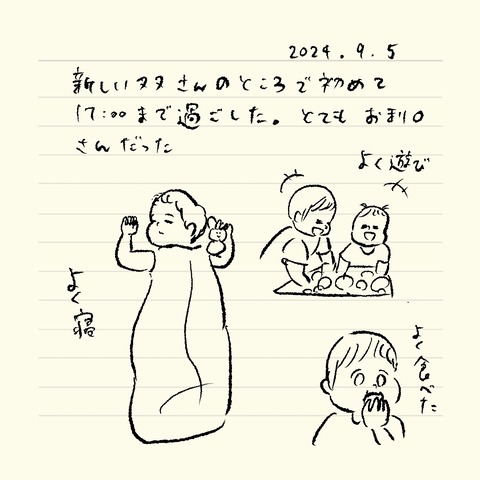 2024.9.5
新しいヌヌさんのところで初めて
17:00まで過ごした。とても お利口
さんだった
よく遊び
よく寝
よく食べた